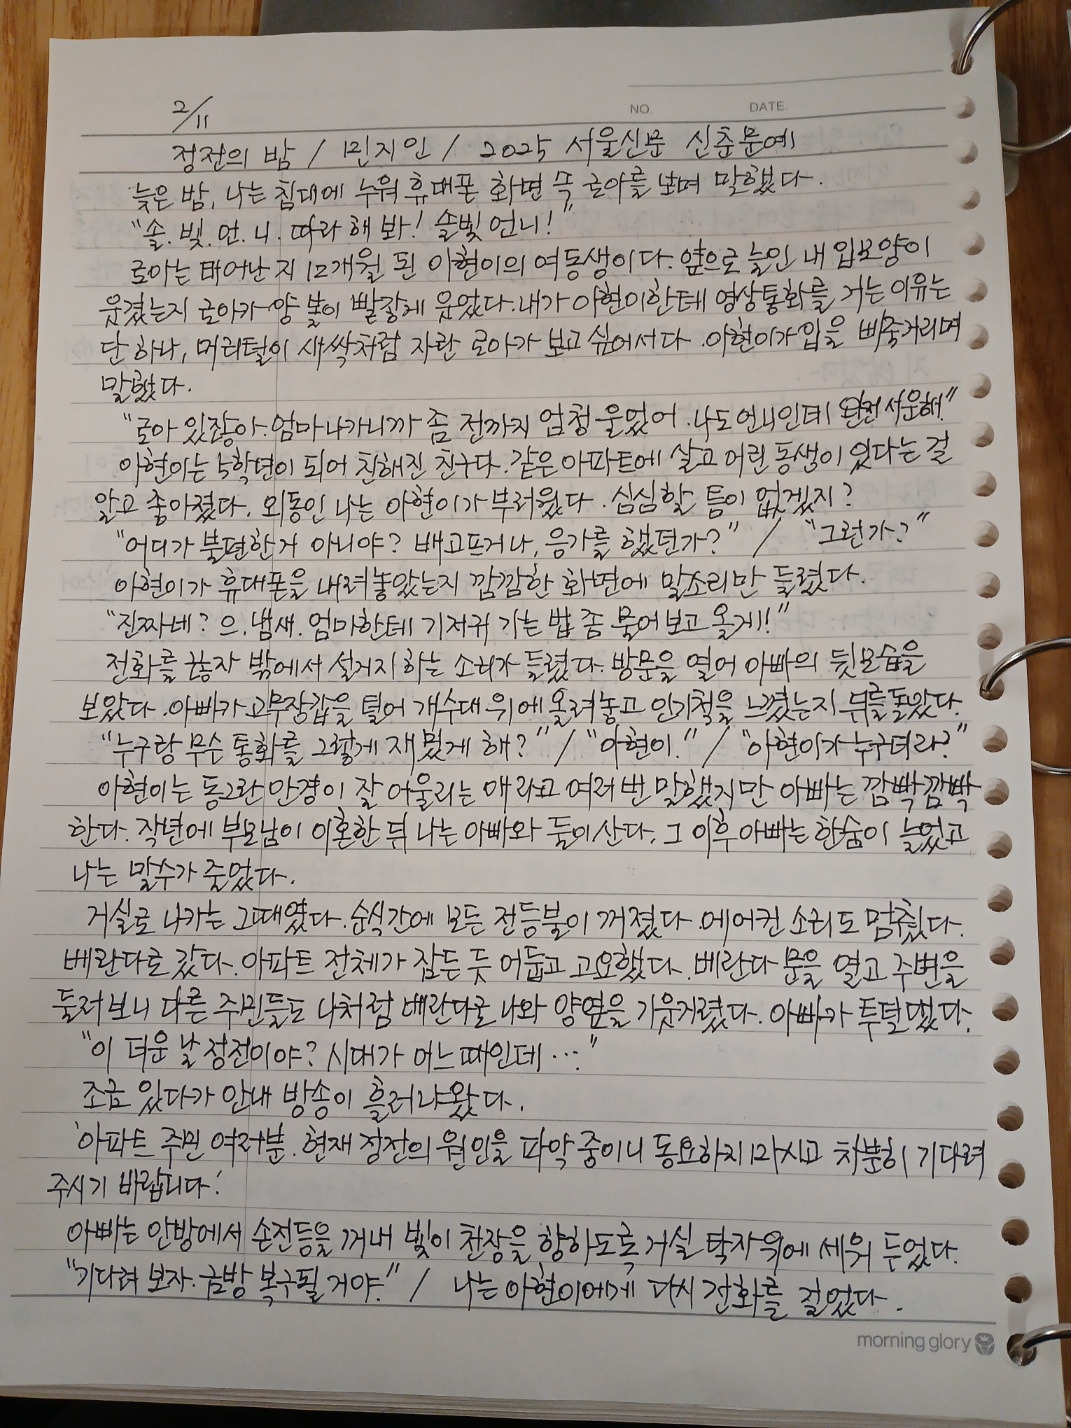 NO. DATE.
2/11
정전의 밤 / 민지인 / 2025 서울신문 신춘문예
늦은 밤, 나는 침대에 누워 휴대폰 화면 속 로아를 보며 말했다.
"솔.빛.언.니. 따라 해 봐! 솔빛 언니!"
로아는 태어난 지 12개월 된 아현이의 여동생이다. 옆으로 늘인 내 입모양이
웃겼는지 로아가 양 볼이 빨갛게 웃었다. 내가 아현이한테 영상통화를 거는 이유는
단 하나, 머리털이 새싹처럼 자란 로아가 보고 싶어서다. 아현이가 입을 삐죽거리며
말했다.
"로아 있잖아. 엄마 나가니까 좀 전까지 엄청 울었어. 나도 언니인데 완전 서운해."
아현이는 5학년이 되어 친해진 친구다. 같은 아파트에 살고 어린 동생이 있다는 걸
알고 좋아졌다. 외동인 나는 아현이가 부러웠다. 심심할 틈이 없겠지?
"어디가 불편한 거 아니야? 배고프거나, 응가를 했던가?" / "그런가?"
아현이가 휴대폰을 내려놓았는지 깜깜한 화면에 말소리만 들렸다.
"진짜네? 으, 냄새. 엄마한테 기저귀 가는 법 좀 물어보고 올게!"
전화를 끊자 밖에서 설거지하는 소리가 들렸다. 방문을 열어 아빠의 뒷모습을
보았다. 아빠가 고무장갑을 털어 개수대 위에 올려놓고 인기척을 느꼈는지 뒤를 돌았다.
"누구랑 무슨 통화를 그렇게 재밌게 해?" / "아현이." / "아현이가 누구더라?"
아현이는 동그란 안경이 잘 어울리는 애라고 여러 번 말했지만 아빠는 깜빡깜빡
한다. 작년에 부모님이 이혼한 뒤 나는 아빠와 둘이 산다. 그 이후 아빠는 한숨이 늘었고
나는 말수가 줄었다.
거실로 나가는 그때였다. 순식간에 모든 전등불이 꺼졌다. 에어컨 소리도 멈췄다.
베란다로 갔다. 아파트 전체가 잠든 듯 어둡고 고요했다. 베란다 문을 열고 주변을
둘러보니 다른 주민들도 나처럼 베란다로 나와 양옆을 기웃거렸다. 아빠가 투덜댔다.
"이 더운 날 정전이야? 시대가 어느 때인데…"
조금 있다가 안내 방송이 흘러나왔다.
'아파트 주민 여러분. 현재 정전의 원인을 파악 중이니 동요하지 마시고 차분히 기다려
주시기 바랍니다.'
아빠는 안방에서 손전등을 꺼내 빛이 천장을 향하도록 거실 탁자 위에 세워 두었다.
"기다려 보자. 금방 복구될 거야." / 나는 아현이에게 다시 전화를 걸었다.
morning glory